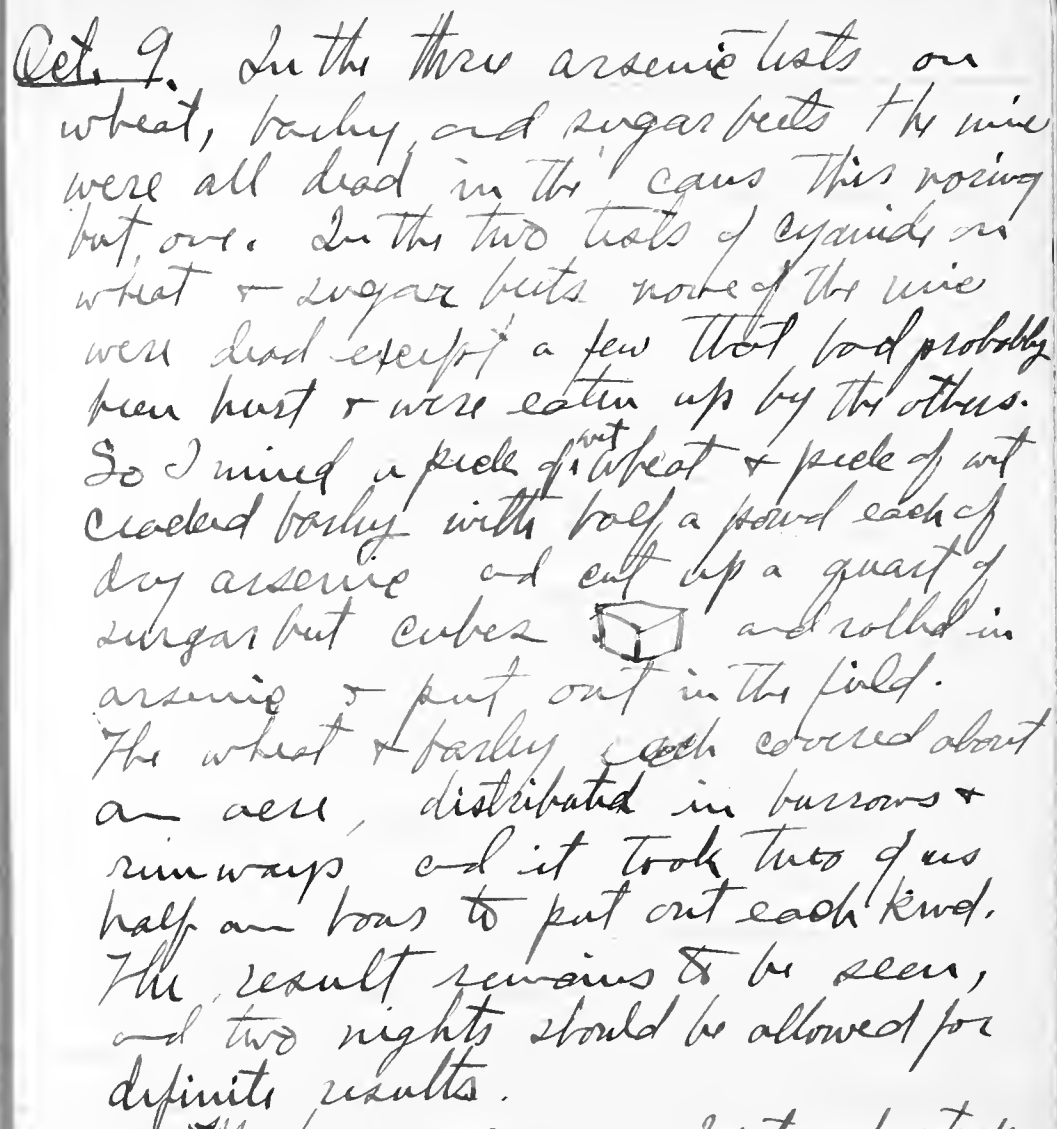 Oct. 9. In the three arsenic tests on
wheat, barley, and sugar beets the mice
were all dead in the cans this moring
but one. In the two tests of cyanide on
wheat & sugar beets none of the mice
were dead except a few that had probably
been hurt & were eaten up by the others.
So I mixed a peck of wet wheat & peck of wet
cracked barley with half a pound each of
dry arsenic and cut up a quart of
surgar beet cubes and rolled in
arsenic & put out in the field.
The wheat & barley each covered about
an acre, distributed in burrows &
runways and it took two of us
half an hour to put out each kind.
The result remains to be seen,
and two nights should be allowed for
definite results.